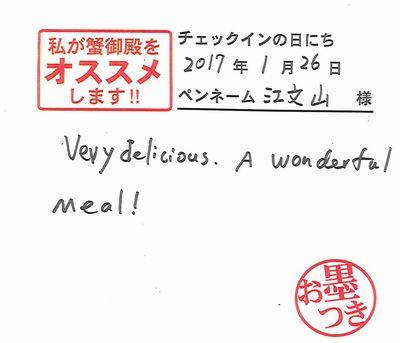 私が蟹御殿を
オススメ
します!!
チェックインの日にち
2017年1月26日
ペンネーム 江文山 様
Very delicious. A wonderful
meal!
墨
おつき